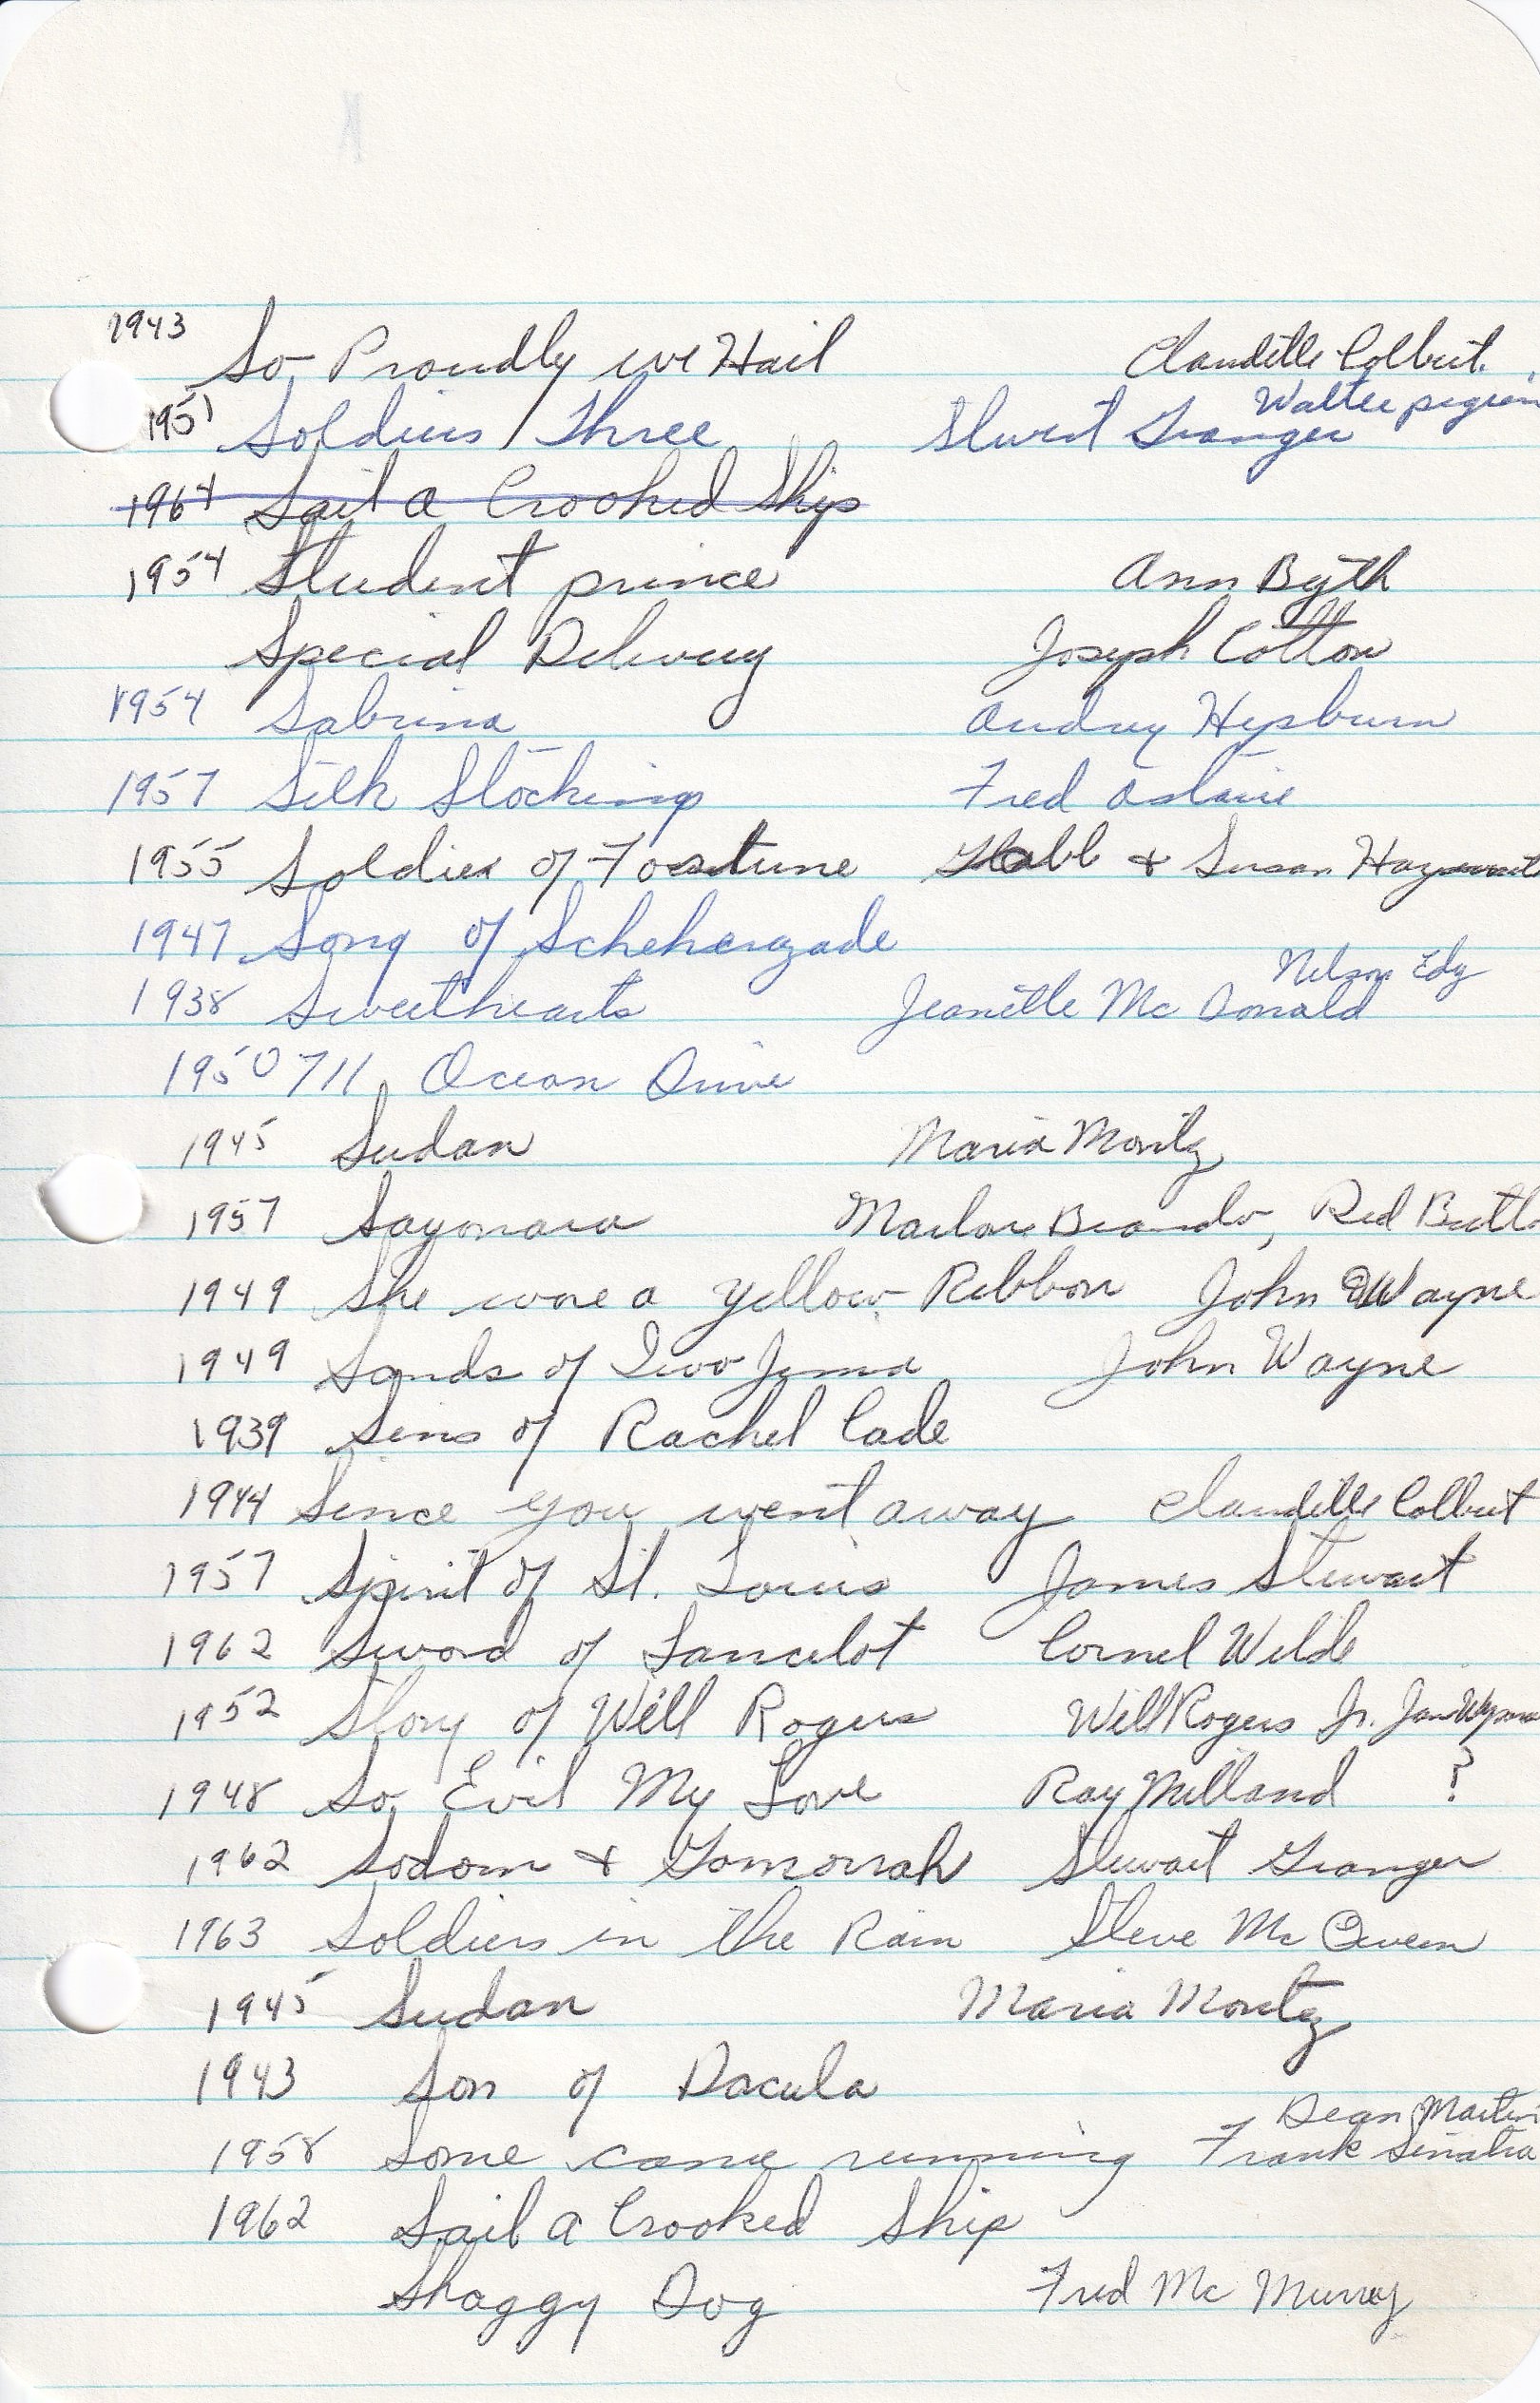 1943 So Proudly we Hail Claudette Colbert.
1951 Soldiers Three Stwert Granger Walter pigeon
1964 Sail a Crooked Ship
1954 Student prince Ann Blyth
Special Delivery Joseph Cotton
1954 Sabrina Audrey Hepburn
1957 Silk Stockings Fred Astaire
1955 Soldier of Fortune & Susan Hayward
1947 Song of Scheherazade
1938 Sweethearts Jeanette Mc Donald Nelson Edy
1950 711 Ocean Drive
1945 Sudan Maria Montz
1957 Sayonara Marlon Brando, Red Butto
1949 She wore a yellow Ribbon John Wayne
1949 Sands of Iwo Jima John Wayne
1939 Sins of Rachel Cade
1944 Since you went away Claudette Colbert
1957 Spirit of St. Louis James Stewart
1962 Sword of Lancelot Cornel Wilde
1952 Story of Will Rogers Will Rogers Jr. Jane Wyman
1948 So Evil My Love Ray Milland ?
1962 Sodom & Gomorrah Stewart Granger
1963 Soldiers in the Rain Steve Mc Queen
1945 Sudan Maria Montez
1943 Son of Dacula
1958 Some came running Dean Martin Frank Sinatra
1962 Sail a Crooked Ship
Shaggy Dog Fred Mc Murray